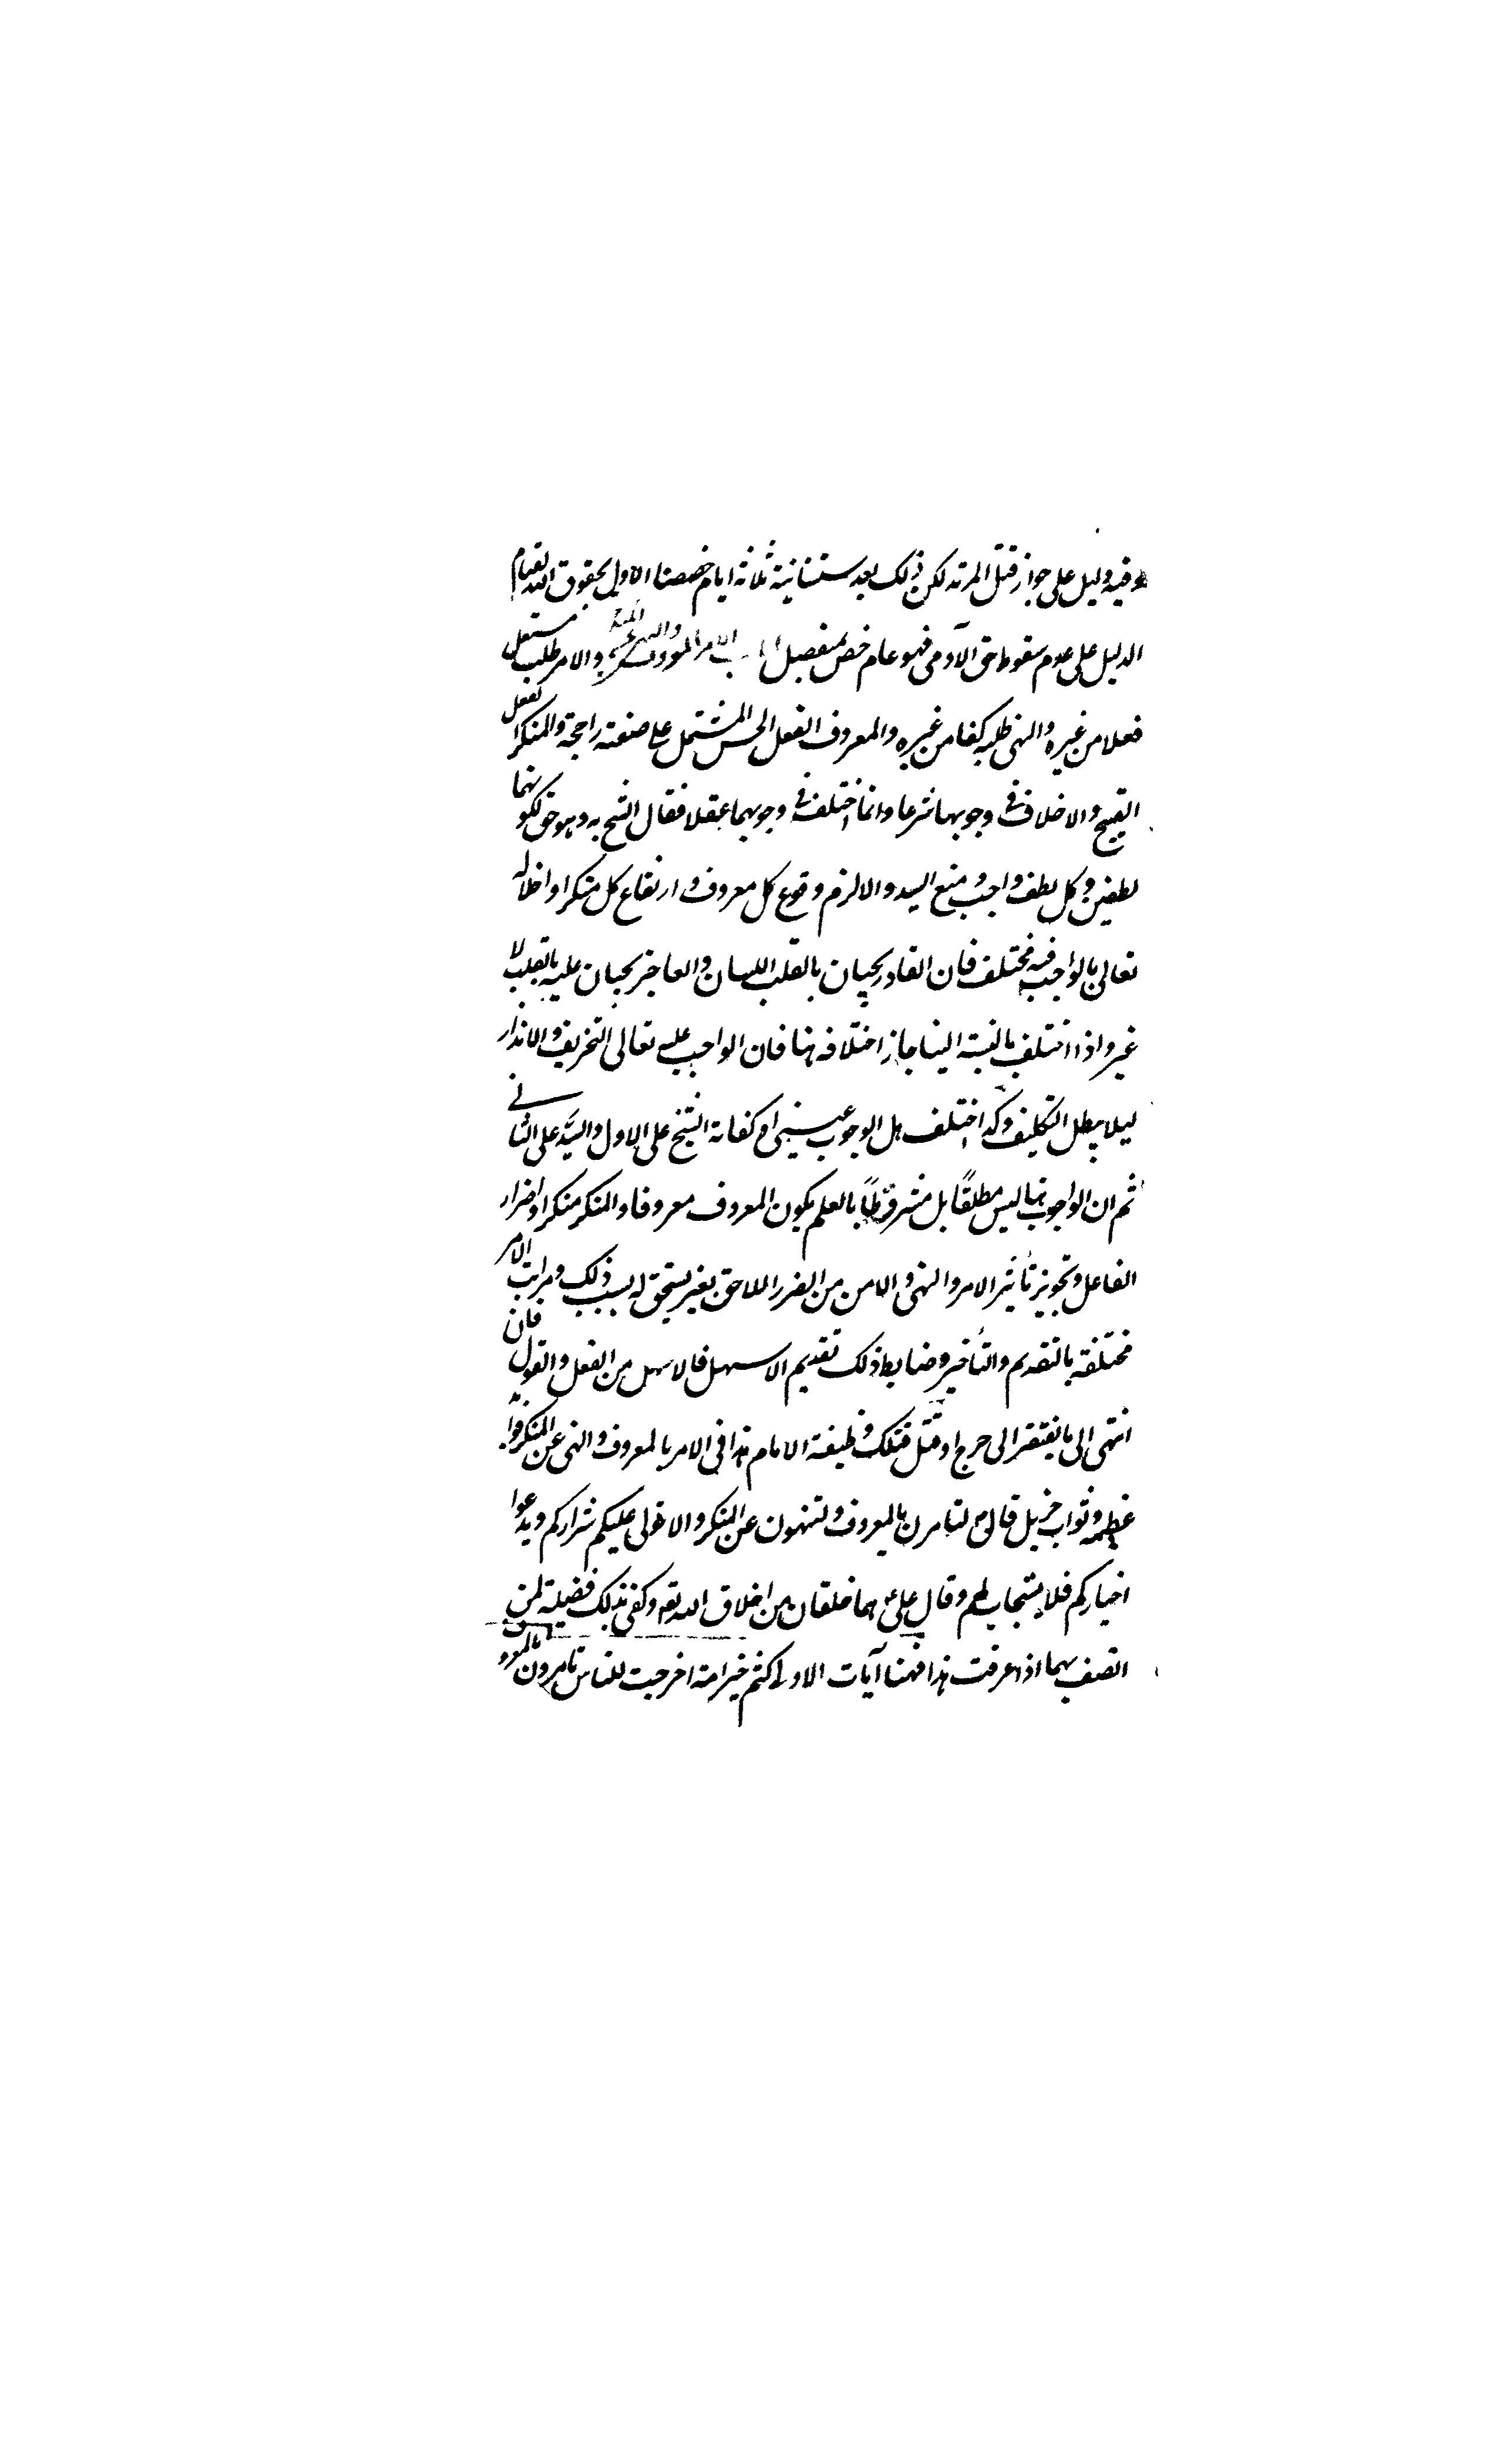 وفيه دليل على جواز قتل المرتد لكن ذلك بعد ستتابته ثلاثة ايام خصصنا الاول بحقوق الله لقيام
الدليل على عدم سقوط حق الآدمي فهو عام خص بمنفصل الامر بالمعروف والنهى عن المنكر والامر طلب مستعلى
فعلا من غيره والنهى طلبه كفا من غيره والمعروف الفعل الحسن المشتمل على صفة راجحة والمنكر الفعل
القبيح والاخلاف فى وجوبهما شرعا وانما اختلف فى وجوبهما عقلا فقال الشيخ به وهو حق لكونهما
لطفين وكل لطف واجب ومنع السيد والا لزم وقوع كل معروف وارتفاع كل منكر او اخلاله
تعالى بالواجب فيه مختلف فان القادر يجبان بالقلب اللسان والعاجز يجبان عليه بالقلب لا
غير واذا اختلف بالنسبة الينا جاز اختلافه هنا فان الواجب عليه تعالى التخويف والانذار
ليلا يبطل التكليف وكذا اختلف هل الوجوب عينى او كفاية الشيخ على الاول والسيد على الثانى
ثم ان الوجوب هنا ليس مطلقًا بل مشروطًا بالعلم بكون المعروف معروفا والمنكر منكرا واضرار
الفاعل وتجويز تأثير الامر والنهى والامن من الضرر اللاحق بغير مستحق له بسبب ذلك ومراتب الامر
مختلفة بالتقديم والتأخير وضابط ذلك تقديم الاسهل فالاسهل من الفعل والقول فان
انتهى الى ما يفتقر الى جرح او قتل فتلك وظيفة الامام هذا فى الامر بالمعروف والنهى عن المنكر فوايد
عظيمه وثواب جزيل قال ص لتامرن بالمعروف ولتنهون عن المنكر والا تولى عليكم شراركم ويدعوا
اخياركم فلا يستجاب لهم وقال على ع هما خلقان من اخلاق الله تعه وكفى بذلك فضيلة لمن
اتصف بهما اذا عرفت هذا فهنا آيات الاولى كنتم خير امة اخرجت للناس تامرون بالمعروف